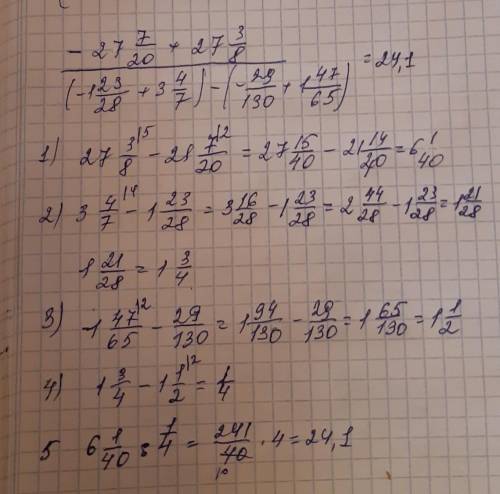 (-27 7/20 + 27 3/8) / ((-1 23/28 + 3 4/7) - (-29/130 + 1 47/65)) = 24,1
1) 27 3/8^15 - 21 7/20^12 = 27 15/40 - 21 14/20 = 6 1/40
2) 3 4/7^14 - 1 23/28 = 3 16/28 - 1 23/28 = 2 44/28 - 1 23/28 = 1 21/28
1 21/28 = 1 3/4
3) 1 47/65^12 - 29/130 = 1 94/130 - 29/130 = 1 65/130 = 1 1/2
4) 1 3/4 - 1 1/2^12 = 1/4
5 6 1/40 : 1/4 = 241/40 · 4 = 24,1
10